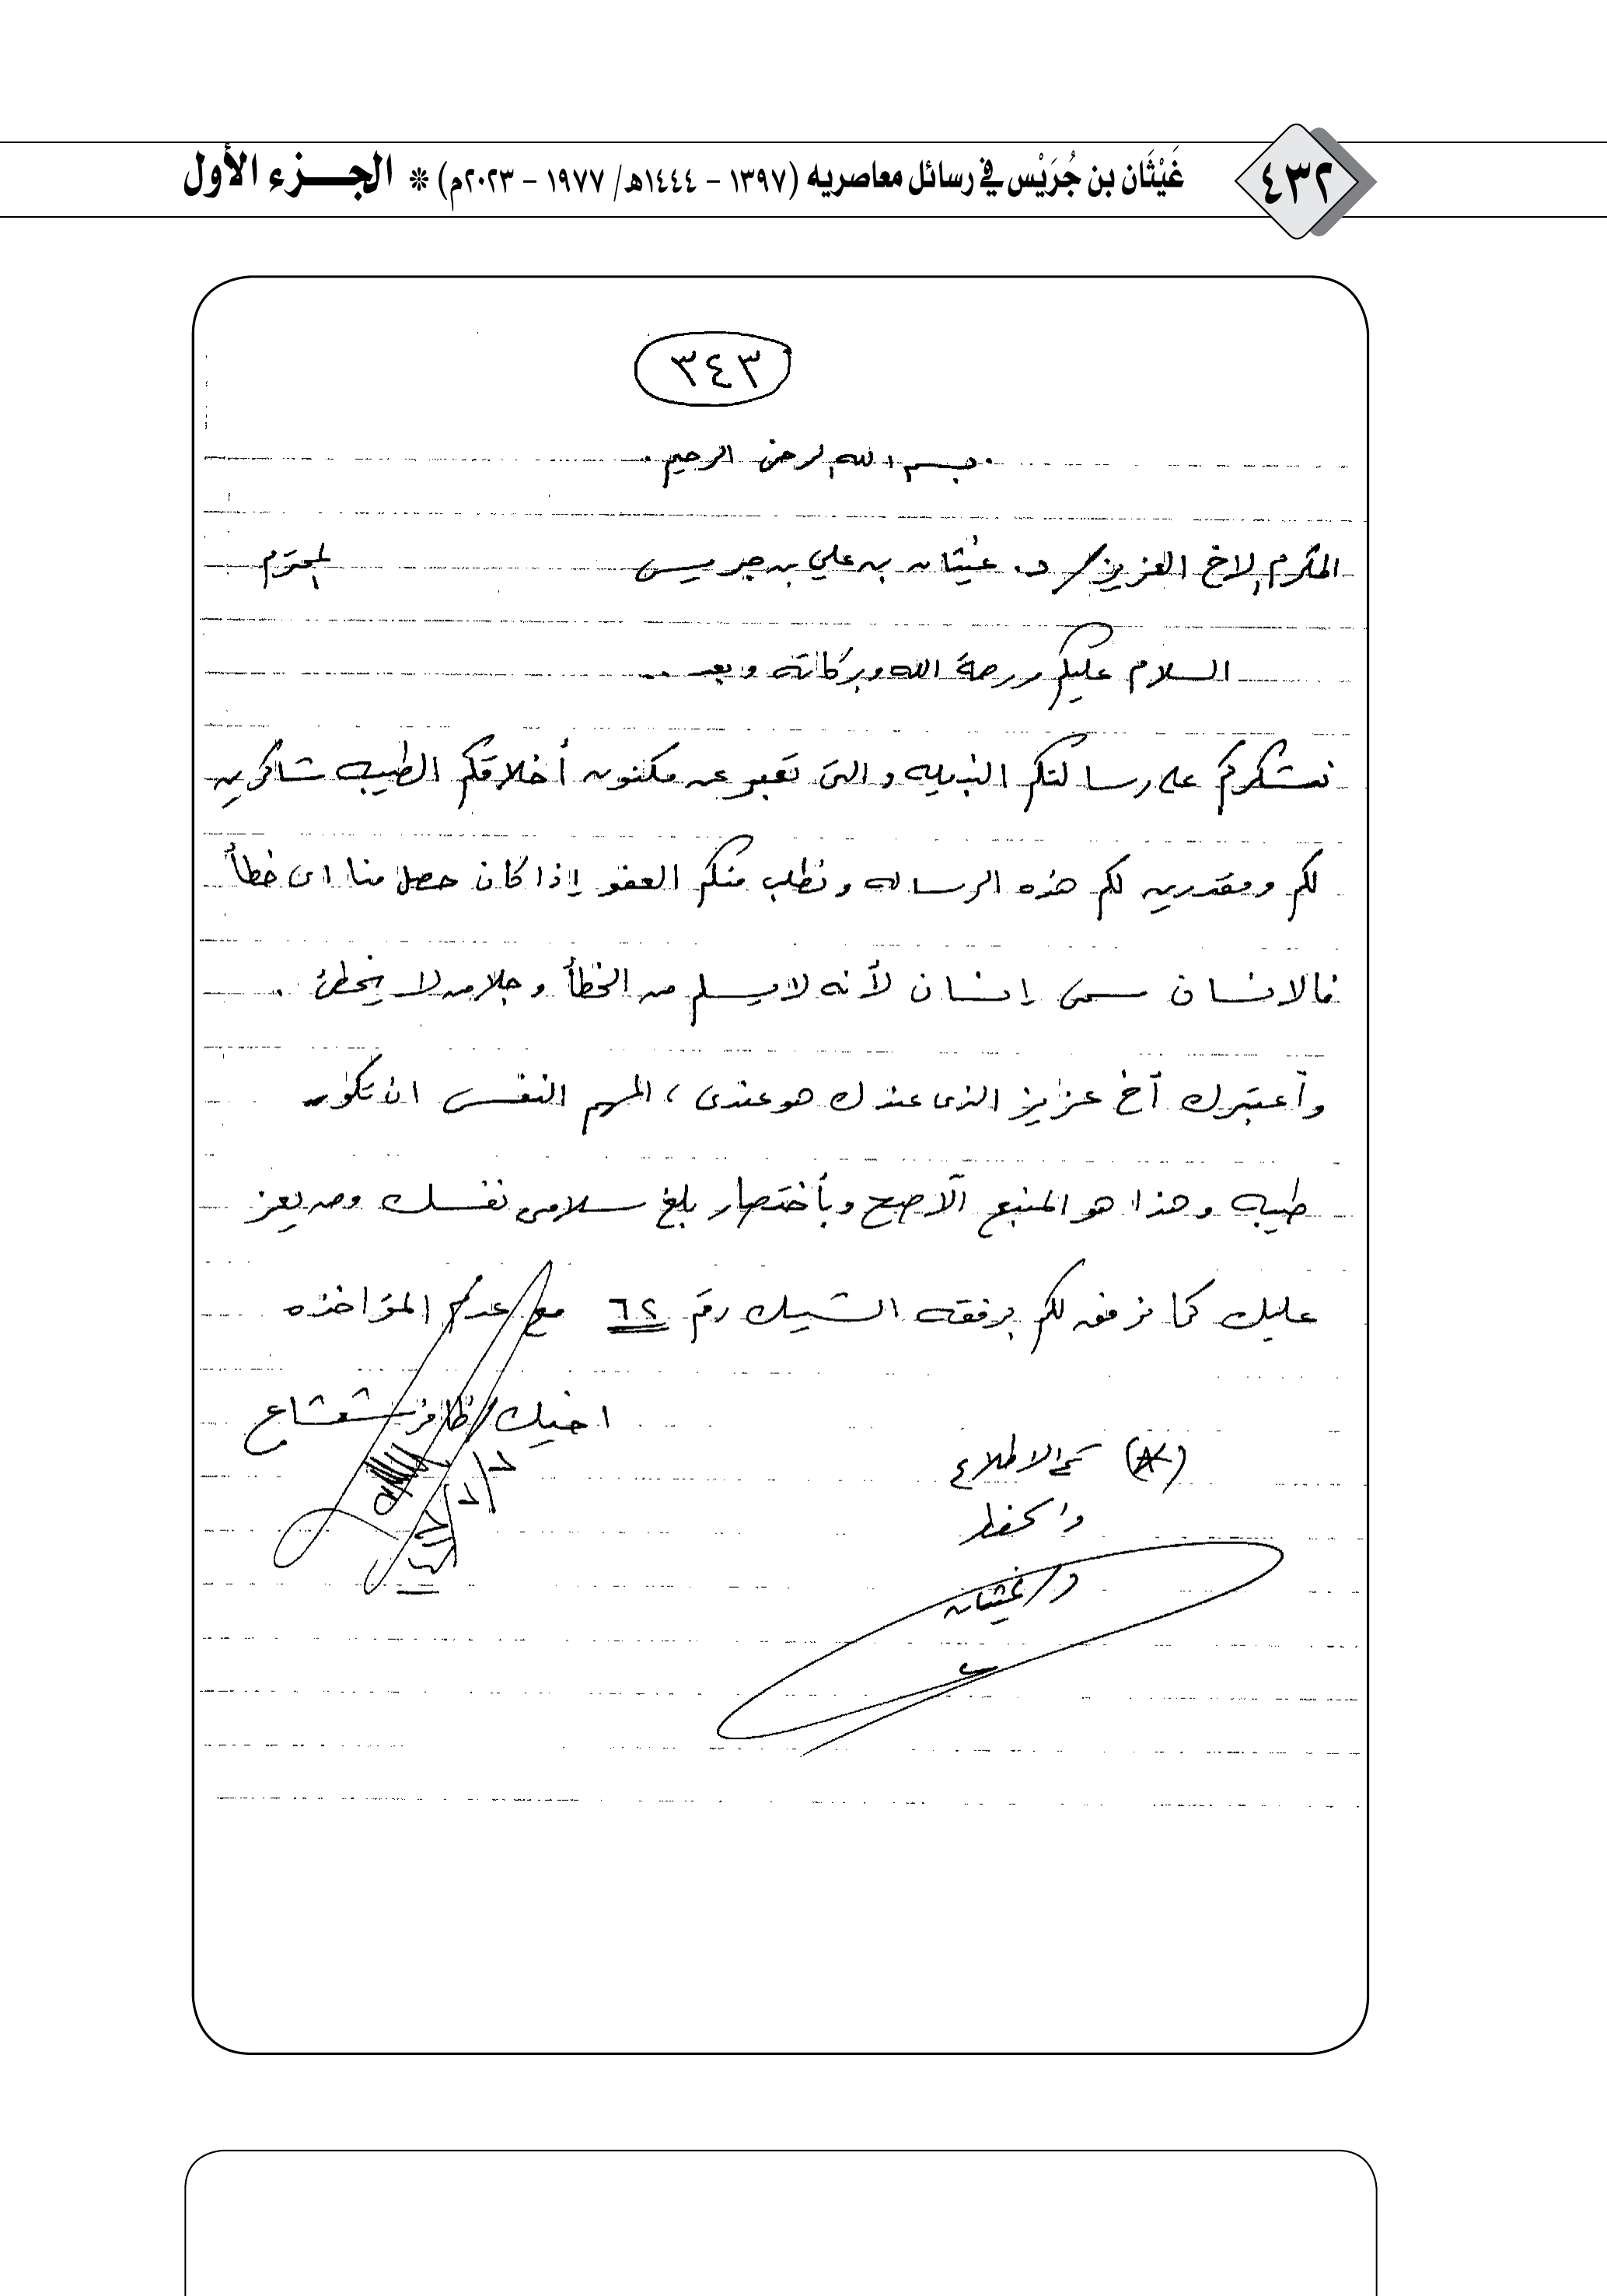 ٤٣٢
غَيْثَان بن جُرَيْس في رسائل معاصريه (١٣٩٧ - ١٤٤٤هـ/ ١٩٧٧ - ٢٠٢٣م) * الجزء الأول
٣٤٣
بسم الله الرحمن الرحيم
المكرم الاخ العزيز / د. غيثان بن علي بن جريس المحترم
السلام عليكم ورحمة الله وبركاته وبعد ..
نتشكركم على رسالتكم النبيله والتى تعبر عن مكنون أخلاقكم الطيبه شاكرين
لكم ومقدرين لكم هذه الرساله ونطلب منكم العفو إذا كان حصل منا اى خطأ
فالانسان سمى إنسان لأنه لا يسلم من الخطأ وجلا من لا يخطئ .
وأعتبرك أخ عزيز الذى عندك هو عندى ، المهم النفس ان تكون
طيبه وهذا هو المنبع الأصح وبأختصار بلغ سلامى نفسك ومن يعز
عليك كما نرفق لكم برفقه الشيك رقم ٦٢ مع عدم المؤاخذه
اخيك / ظافر شعشاع
(*) تم الاطلاع
والحفظ
د/ غيثان